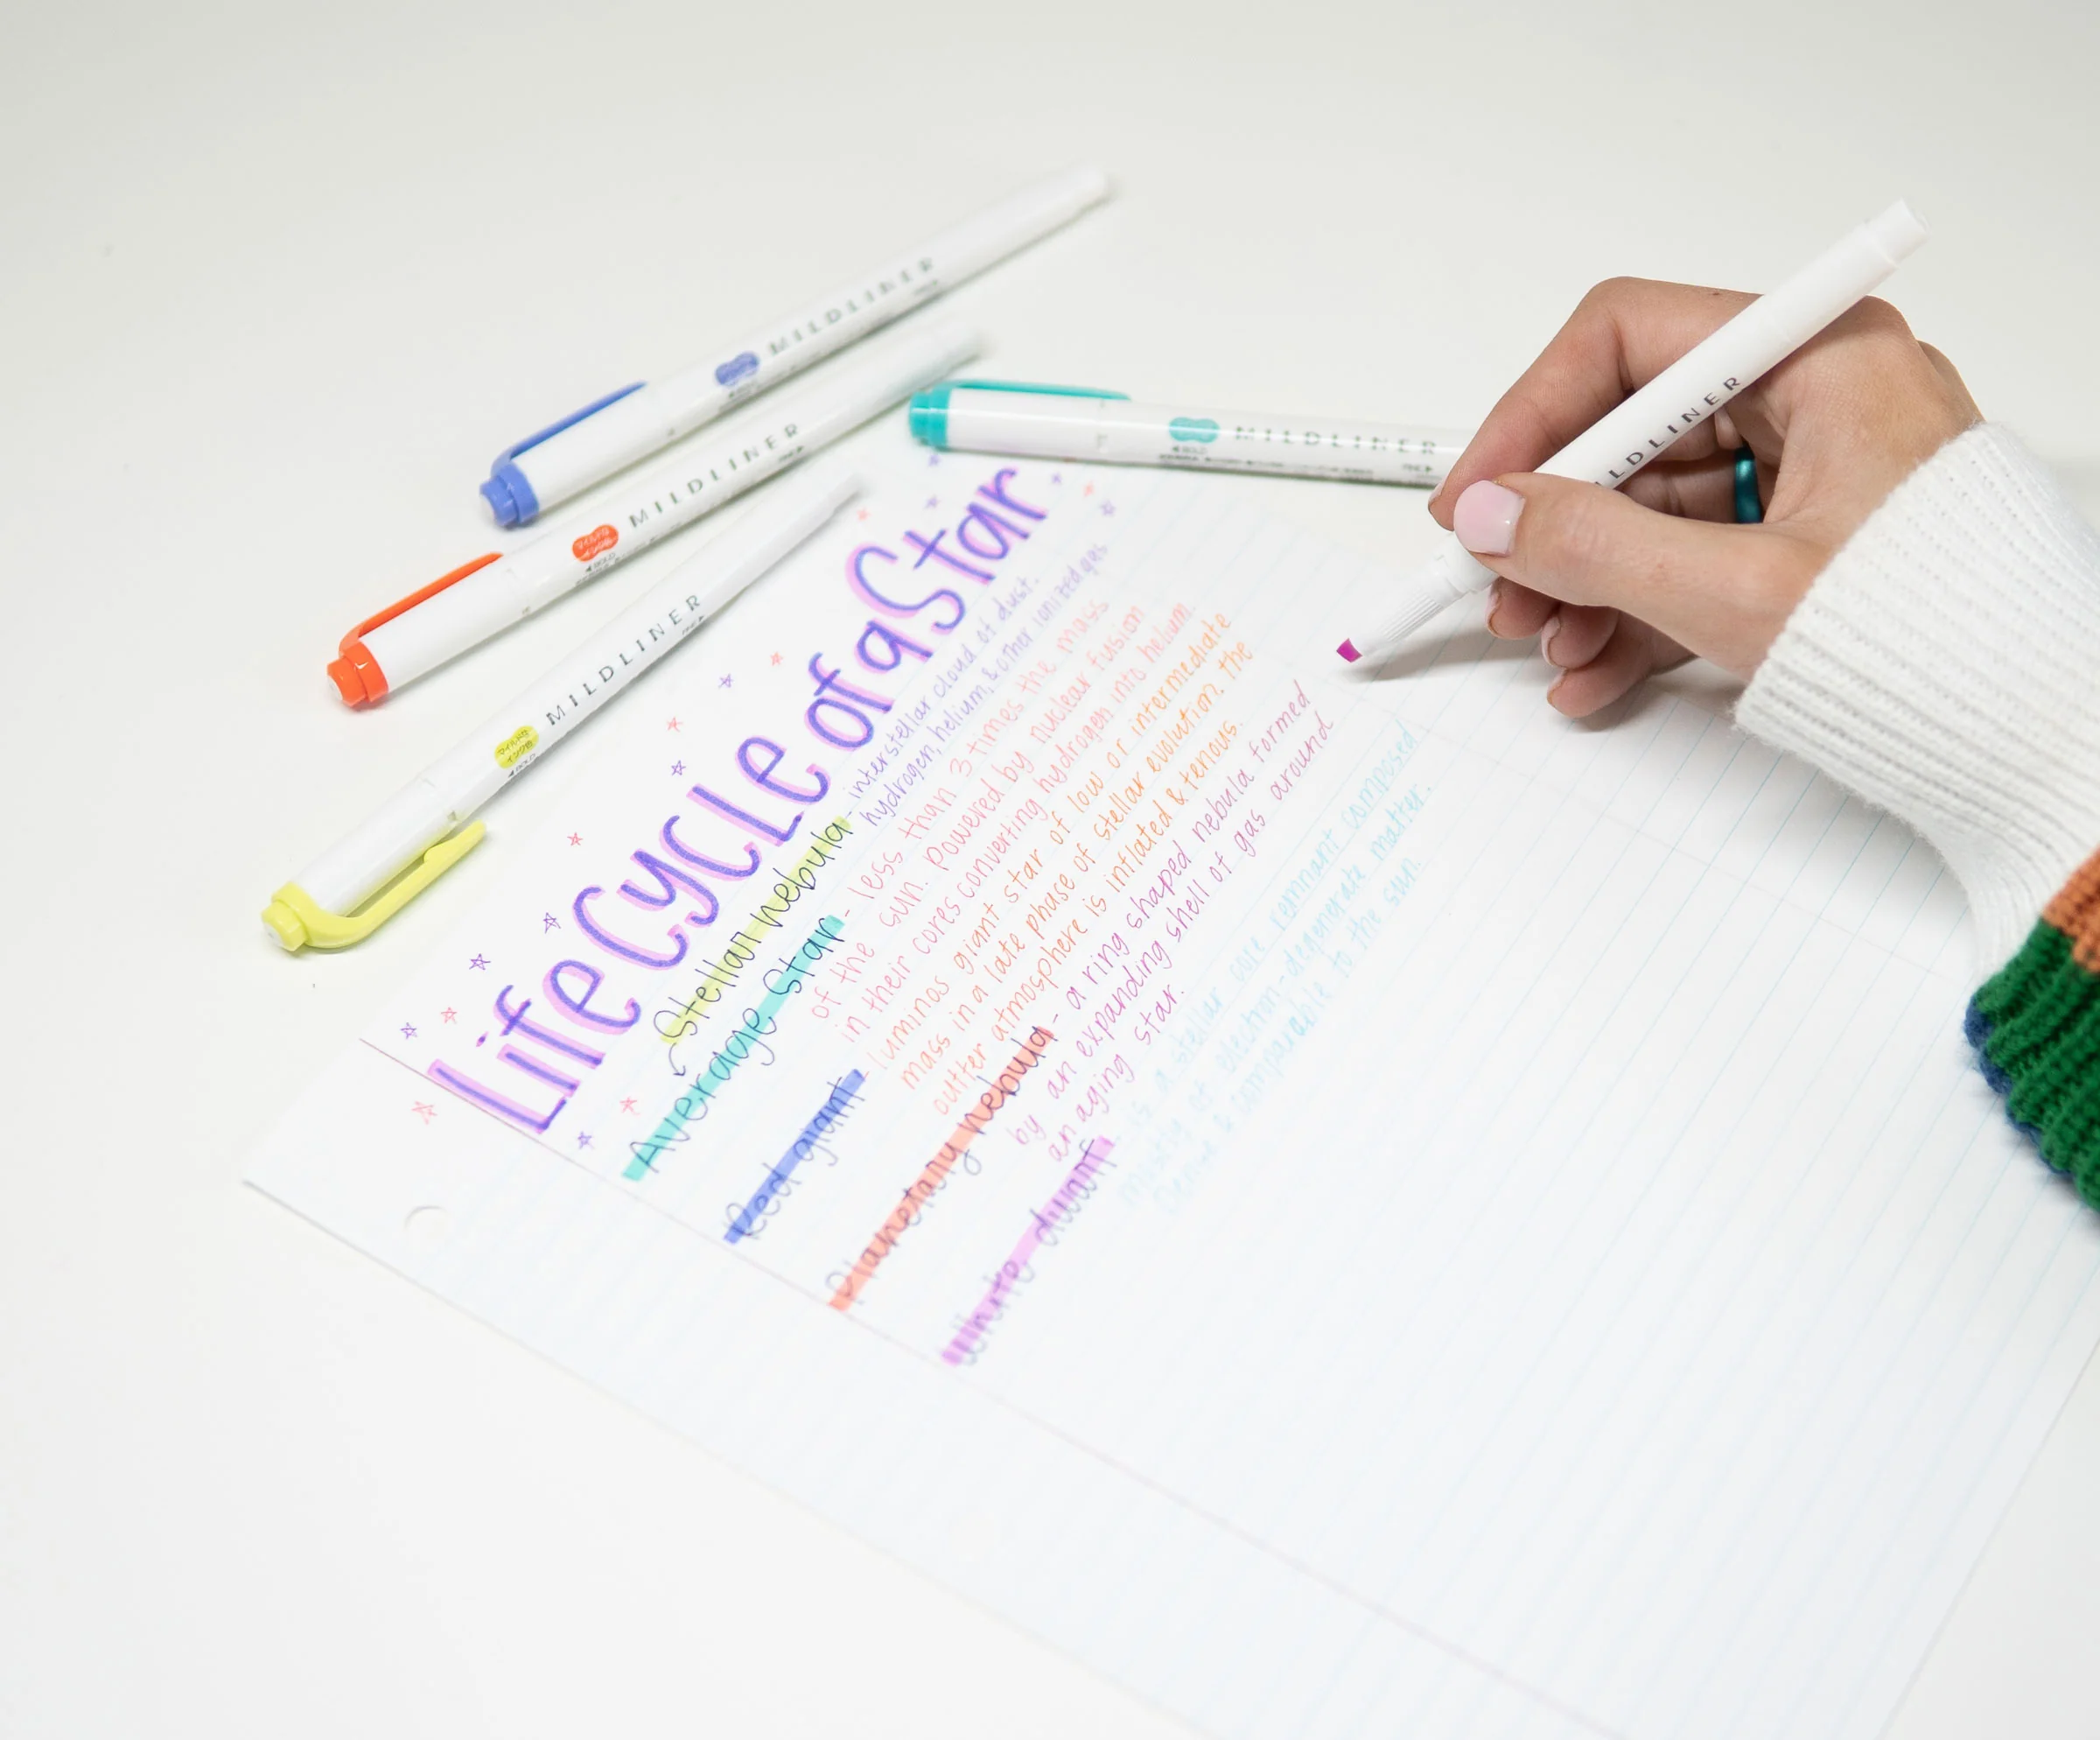 MILDLINER
MILDLINER
MILDLINER
MILDLINER
MILDLINER
Life Cycle of a Star
Stellar nebula - interstellar cloud of dust.
hydrogen, helium, & other ionized gas
Average Star - less than 3 times the mass
of the sun. Powered by nuclear fusion
in their cores converting hydrogen into helium.
Red giant luminos giant star of low or intermediate
mass in a late phase of stellar evolution. the
outter atmosphere is inflated & tenous.
Planetary nebula - a ring shaped nebula formed
by an expanding shell of gas around
an aging star.
White dwarf - is a stellar core remnant composed
mostly of electron-degenerate matter.
Dense & comparable to the sun.